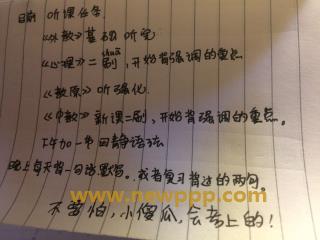 目前 听课任务
《外教》基础听完
shuā
《心理》二刷,开始背强调的重点
《教原》听强化
《中教》新课二刷,开始背强调的重点。
下午加一节田静语法
晚上每天背一句话默写。或者复习背过的两句。
www.newppp.com
不害怕,小傻瓜,会考上的!